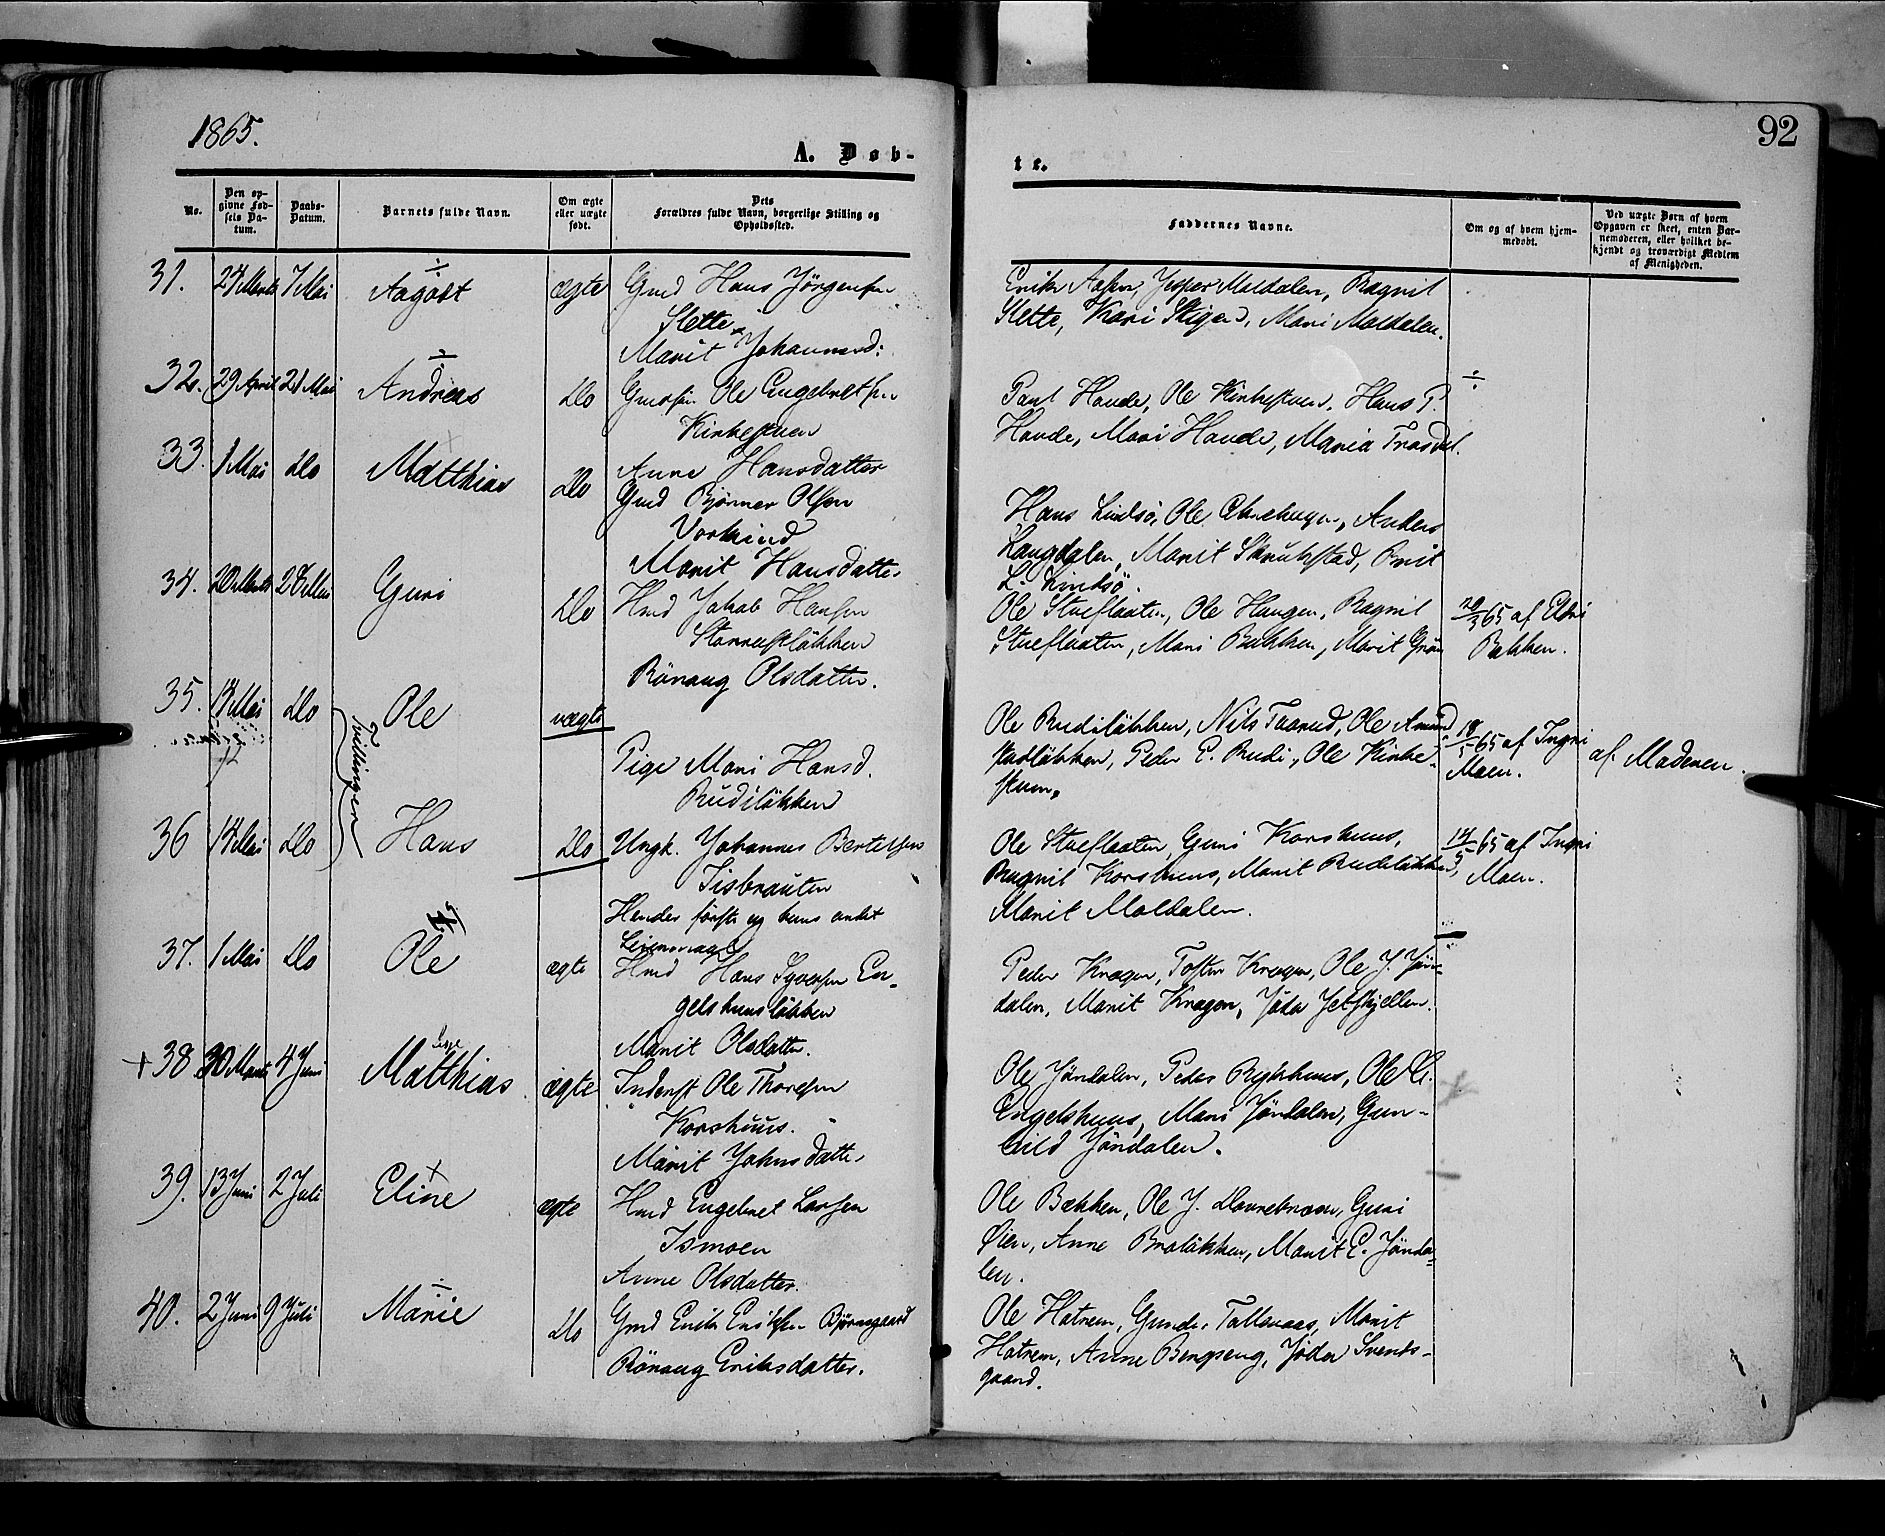 1865.
92
A. Døb-
te.
No.
Den op-
givne Fød-
sels Da-
tum.
Daabs-
Datum.
Barnets fulde Navn.
Om ægte
eller uægte
født.
Dets
Forældres fulde Navn, borgerlige Stilling og
Opholdssted.
Faddernes Navne.
Om og af hvem hjem-
medøbt.
Ved uægte Børn af hvem
Opgaven er skeet, enten Bar-
nemoderen, eller hvilket be-
kjendt og troværdigt Medlem
af Menigheden.
31. 24 Marts 7 Mai Aagodt ægte Gmd Hans Jörgensen
Slette
Marit Johannesd:
Erik Aasen, Jesper Moldalen, Ragnil
Slette, Kari Stigen, Mari Moldalen.
32. 29 April 21 Mai Andreas do Gmdsön Ole Engebretsen
Kirkestuen
Anne Hansdatter
Paul Hande, Ole Kirkestuen, Hans P.
Hande, Mari Hande, Maria Trosdal.
33. 1 Mai do Matthias do Gmd Bjørner Olsen
Vorkind
Marit Hansdatter
Hans Lindsö, Ole, Anders
Langdalen, Marit Skrubstad, Brit
L. Lindsö.
34. 20 Marts 28 Mai Guri do Hmd Jakob Hansen
Rönaug Olsdatter.
Ole Stueflaaten, Ole Haugen, Ragnil
Stueflaaten, Mari Bakken, Marit Grön
20/3 65 af Eldri
Bakken.
35. 14 Mai do Ole uægte
Tvillinger
Pige Mari Hansd.
Rudilökken
Ole Rudilökken, Nils Taarud, Ole Amund
stadlökken, Peder P. Rudi, Ole Kirke-
stuen,
14/5 65 af Ingri
Moen.
af Moderen.
36 14 Mai do Hans do Ungk. Johannes Bertelsen
Tisbrauten
Hendes förste og hans andet
Leiermaal
Ole Stueflaaten, Guri Korshuus,
Ragnil Korshuus, Marit Rudilökken,
Marit Moldalen.
14/5 65 af Ingri
Moen.
37. 1 Mai do Ole ægte Hmd Hans Syversen En-
gelshuuslökken
Marit Olsdatter.
Peder Kragen, Tosten Kragen, Ole J. Jön-
dalen, Marit Kragen, Jöda Jetskjellen.
+ 38 30 Marts 4 Juni Matthias ægte Inderst Ole Thoresen
Korshuus.
Marit Johnsdatter
Ole Jöndalen, Peder Rykhuus, Ole H.
Engelshuus, Mari Jöndalen, Gun-
hild Jöndalen.
39. 13 Juni 2 Juli Eline ægte Hmd Engebret Larsen
Ismoen
Anne Olsdatter.
Ole Bækken, Ole J. Dovrekroen, Guri
Øien, Anne Brolökken, Marit E. Jönda-
len.
40. 2 Juni 9 Juli Marie do Gmd Erik Eriksen Bjørnsgaard
Rönaug Eriksdatter.
Ole Hatrem, Gunder Tallenaas, Marit
Hatrem, Anne Bergseng, Jöda Svends-
gaard.